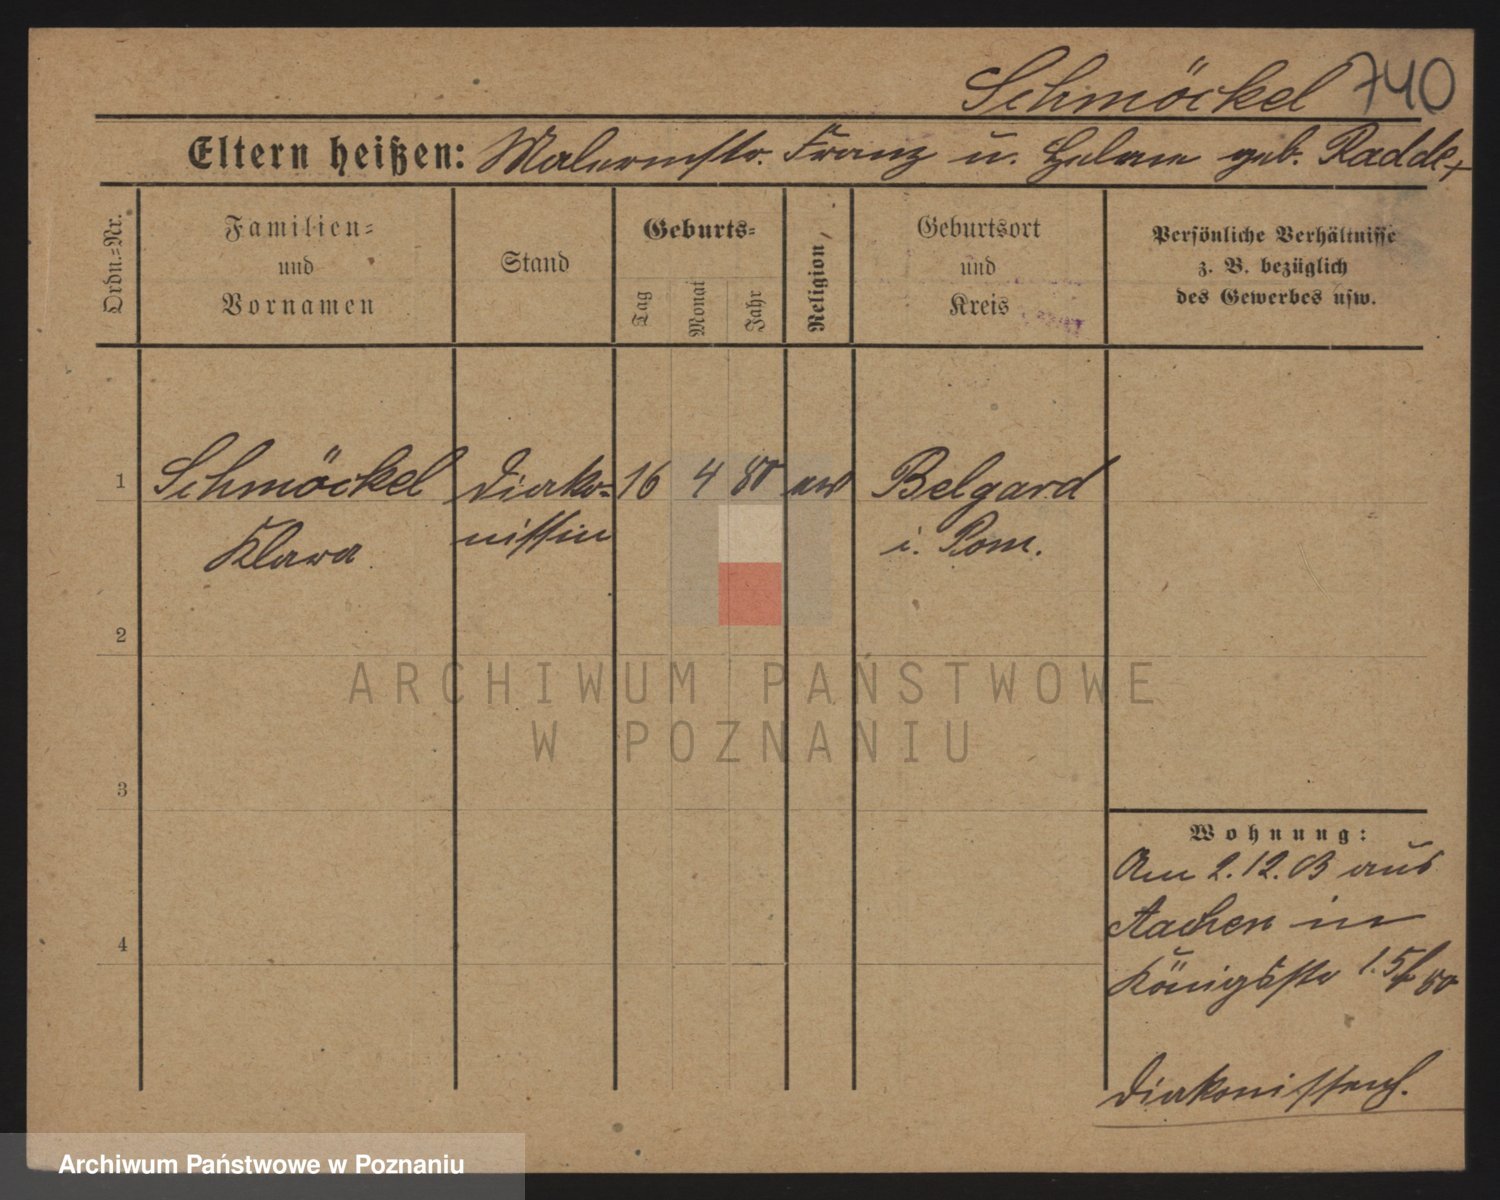 Schmöckel 740
Eltern heißen: Malermstr. Franz u. Helene geb. Radde+
Ordn.=Nr.
Familien=
und
Vornamen
Stand
Geburts=
Tag
Monat
Jahr
Religion
Geburtsort
und
Kreis
Persönliche Verhältnisse
z. B. bezüglich
des Gewerbes usw.
1 Schmöckel Diako= 16 4 80 ev Belgard
Klara nissin i. Pom.
2
ARCHIWUM PAŃSTWOWE
W POZNANIU
3
Wohnung:
Am 2.12.03 aus
Aachen in
4
Königsstr
Diakonissenh.
Archiwum Państwowe w Poznaniu